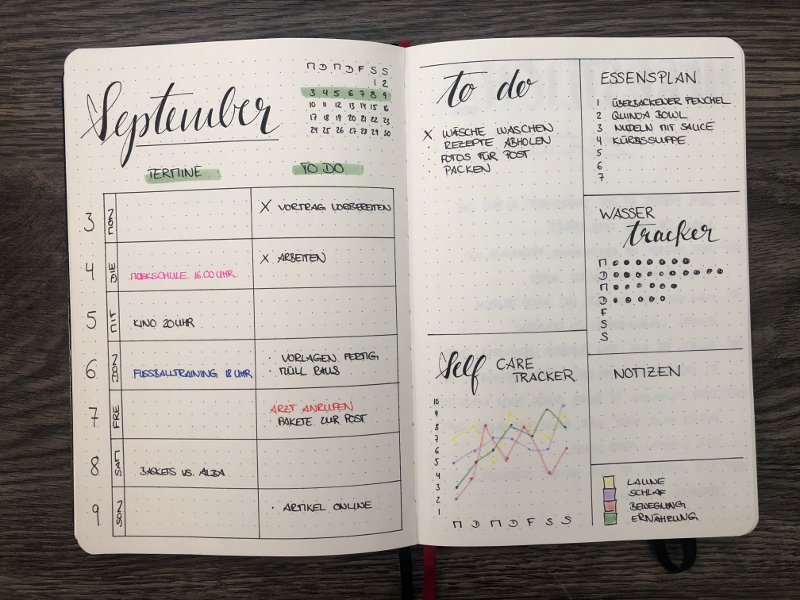 September
M D M D F S S
1 2
3 4 5 6 7 8 9
10 11 12 13 14 15 16
17 18 19 20 21 22 23
24 25 26 27 28 29 30
TERMINE TO DO
3 MON X VORTRAG VORBEREITEN
4 DIE MUSIKSCHULE 16.00 UHR X ARBEITEN
5 MIT KINO 20 UHR
6 DON FUSSBALLTRAINING 18 UHR · VORLAGEN FERTIG
· MÜLL RAUS
7 FRE ARZT ANRUFEN
· PAKETE ZUR POST
8 SAM BASKETS VS. ALBA
9 SON · ARTIKEL ONLINE
to do
X WÄSCHE WASCHEN
· REZEPTE ABHOLEN
· FOTOS FÜR POST
· PACKEN
Self CARE
TRACKER
10
9
8
7
6
5
4
3
2
1
M D M D F S S
ESSENSPLAN
1 ÜBERBACKENER FENCHEL
2 QUINOA BOWL
3 NUDELN MIT SAUCE
4 KÜRBISSUPPE
5
6
7
WASSER
tracker
M
D
M
D
F
S
S
NOTIZEN
LAUNE
SCHLAF
BEWEGUNG
ERNÄHRUNG